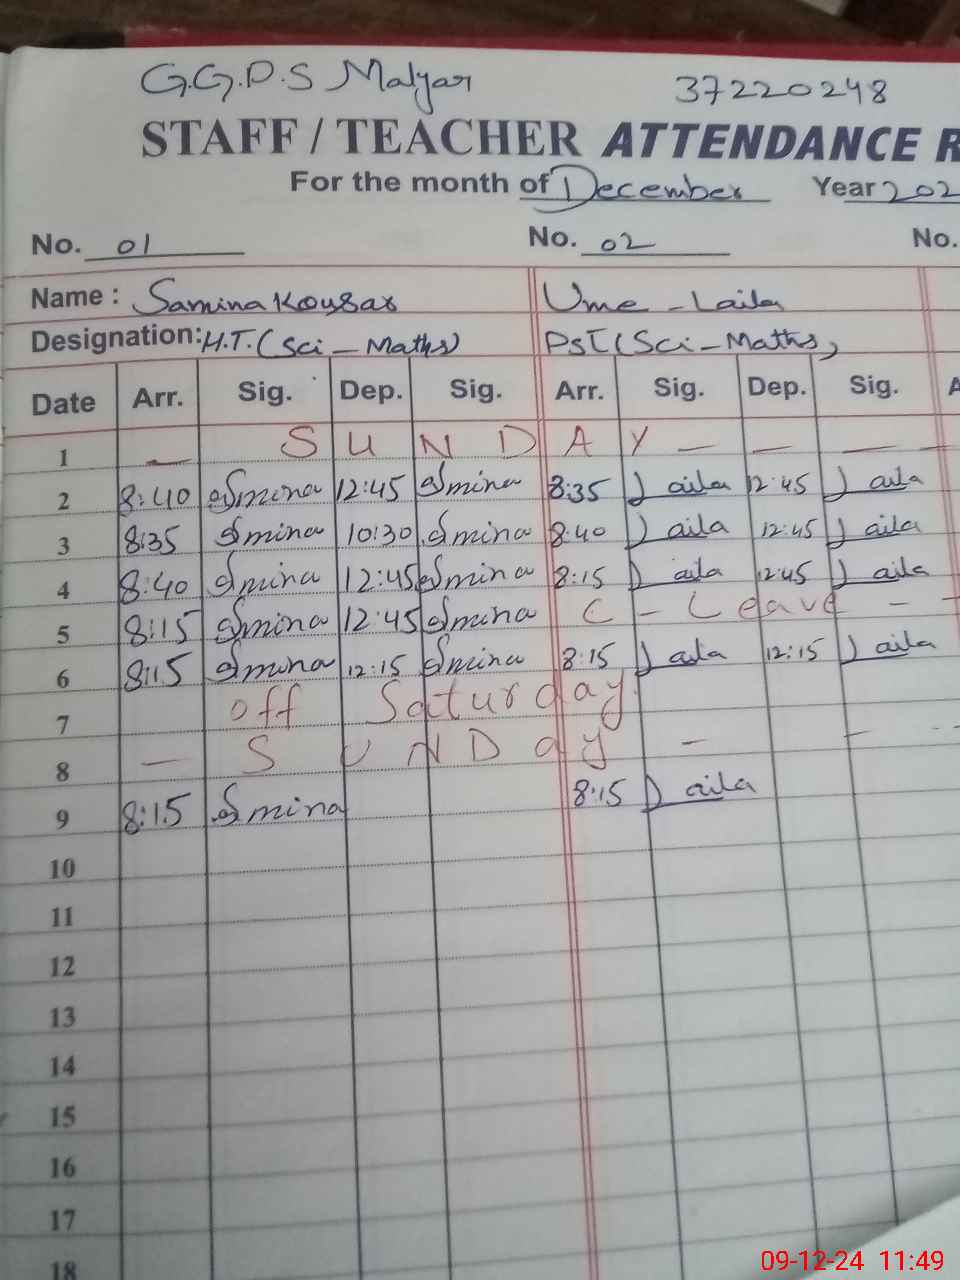 G.G.P.S Malyar 37220248
STAFF / TEACHER ATTENDANCE R
For the month of December Year 202
No. 01 No. 02 No.
Name : Samina Kousar Ume - Laila
Designation: H.T. (Sci - Maths) PST (Sci - Maths)
Date Arr. Sig. Dep. Sig. Arr. Sig. Dep. Sig. A
1 — S U N D A Y — — — —
2 8:40 Smina 12:45 Smina 8:35 Laila 12:45 Laila
3 8:35 Smina 10:30 Smina 8:40 Laila 12:45 Laila
4 8:40 Smina 12:45 Smina 8:15 Laila 12:45 Laila
5 8:15 Smina 12:45 Smina C - Leave - -
6 8:15 Smina 12:15 Smina 8:15 Laila 12:15 Laila
7 off Saturday
8 — S U N D a y — — -
9 8:15 Smina 8:15 Laila
10
11
12
13
14
15
16
17
18
09-12-24 11:49